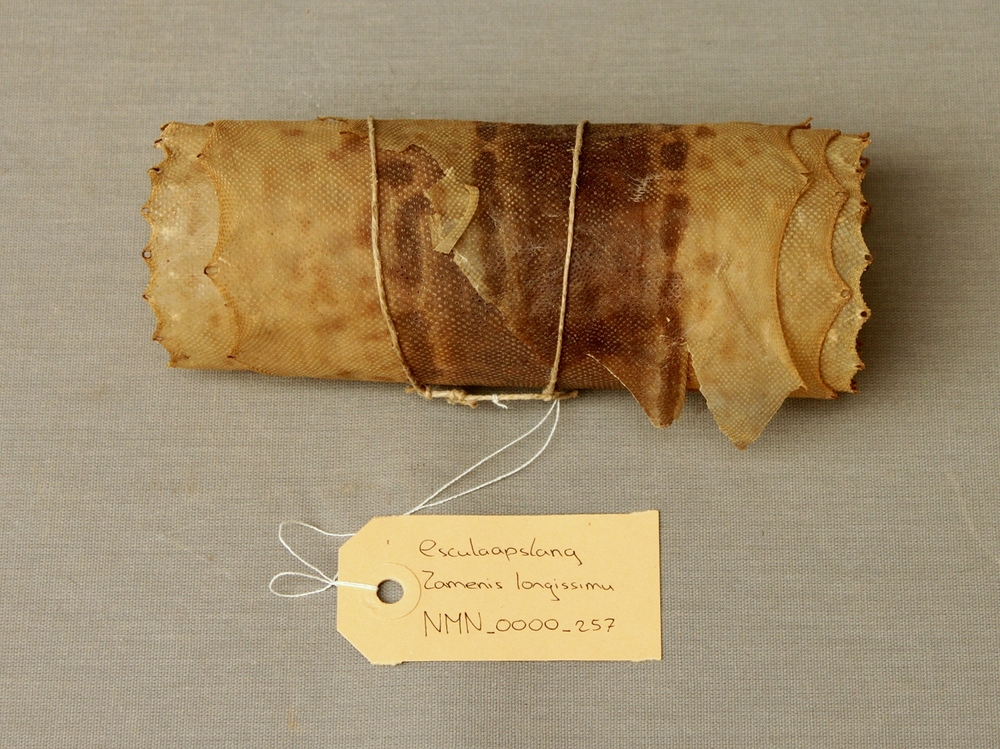 esculaapslang
Zamenis longissimu
NMN_0000_257